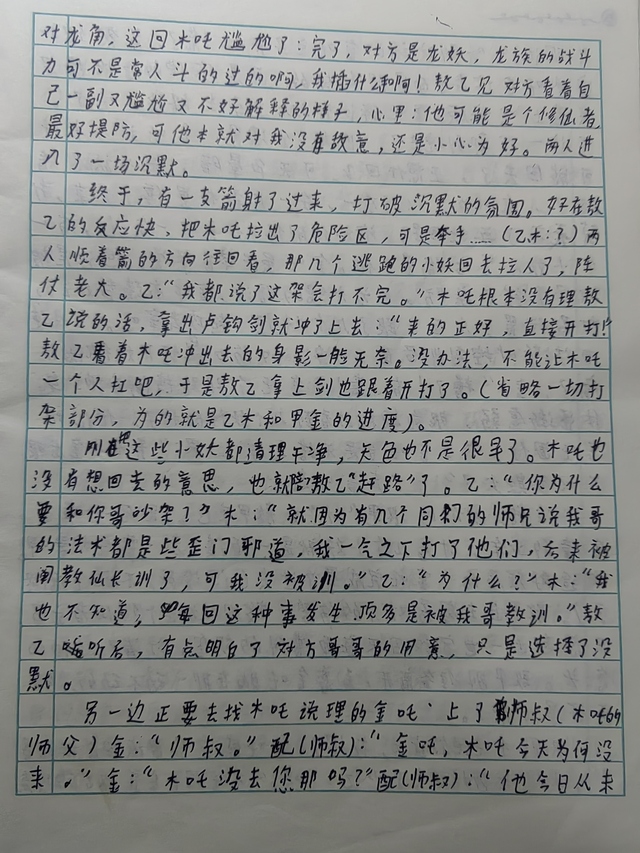 对龙角，这回木吒尴尬了：完了，对方是龙妖，龙族的战斗
力可不是常人斗的过的啊，我插什么啊！敖乙见对方看着自
己一副又尴尬又不好解释的样子，心里：他可能是个修仙者
最好提防，可他本就对我没有敌意，还是小心为好。两人进
入了一场沉默。
终于，有一支箭射了过来，打破沉默的氛围。好在敖
乙的反应快，把木吒拉出了危险区，可是牵手……（乙木：？）两
人顺着箭的方向往回看，那几个逃跑的小妖回去拉人了，阵
仗老大。乙：“我都说了这架会打不完。”木吒根本没有理敖
乙说的话，拿出卢钩剑就冲了上去：“来的正好，直接开打！”
敖乙看着木吒冲出去的身影一脸无奈。没办法，不能让木吒
一个人扛吧，于是敖乙拿上剑也跟着开打了。（省略一切打
架部分，为的就是乙木和甲金的进度）。
刚把这些小妖都清理干净，天色也不是很早了。木吒也
没有想回去的意思，也就陪敖乙“赶路”了。乙：“你为什么
要和你哥吵架？”木：“就因为有几个同们的师兄说我哥
的法术都是些歪门邪道，我一气之下打了他们，后来被
阐教仙长训了，可我没被训。”乙：“为什么？”木：“我
也不知道，每回这种事发生顶多是被我哥教训。”敖
乙听后，有点明白了对方哥哥的用意，只是选择了没
默。
另一边正要去找木吒说理的金吒上了师叔（木吒的
师父）金：“师叔。”配（师叔）：“金吒，木吒今天为何没
来。”金：“木吒没去您那吗？”配（师叔）：“他今日从未